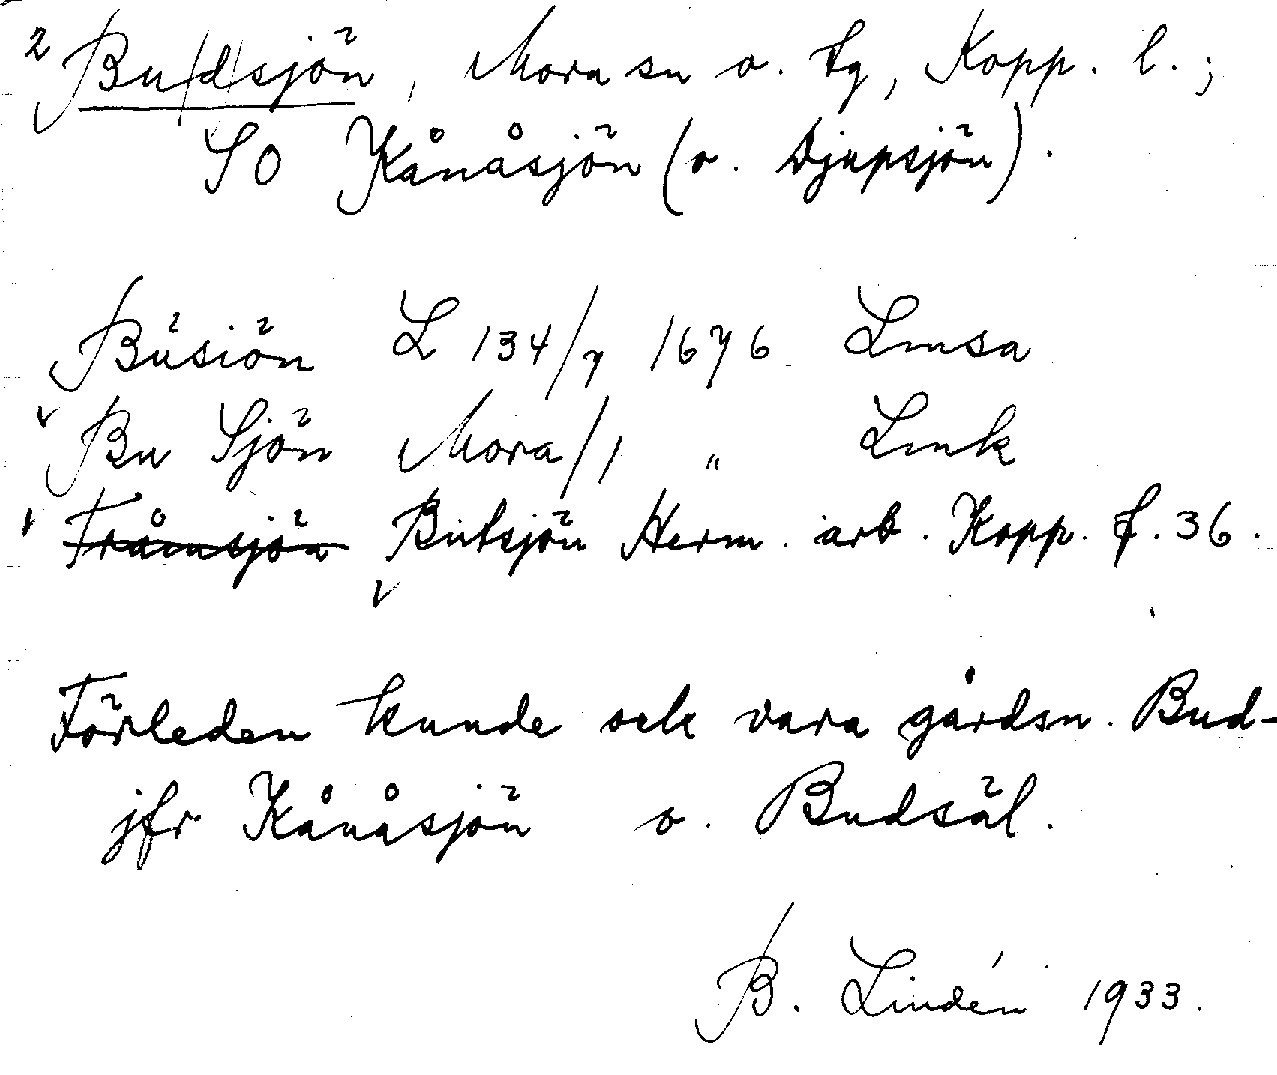 2 Bu/d/sjön, Mora sn o. tg, Kopp. l.;
SO Kånåsjön (o. Djupsjön).
Büsiön L 134/7 1676 Lmsa
Bu Sjön Mora/1 " Lmk
Fråmsjön Butsjön Herm. arb. Kopp. f. 36.
Förleden kunde ock vara gårdsn. Bud-
jfr Kånåsjön o. Budsäl.
B. Lindén 1933.